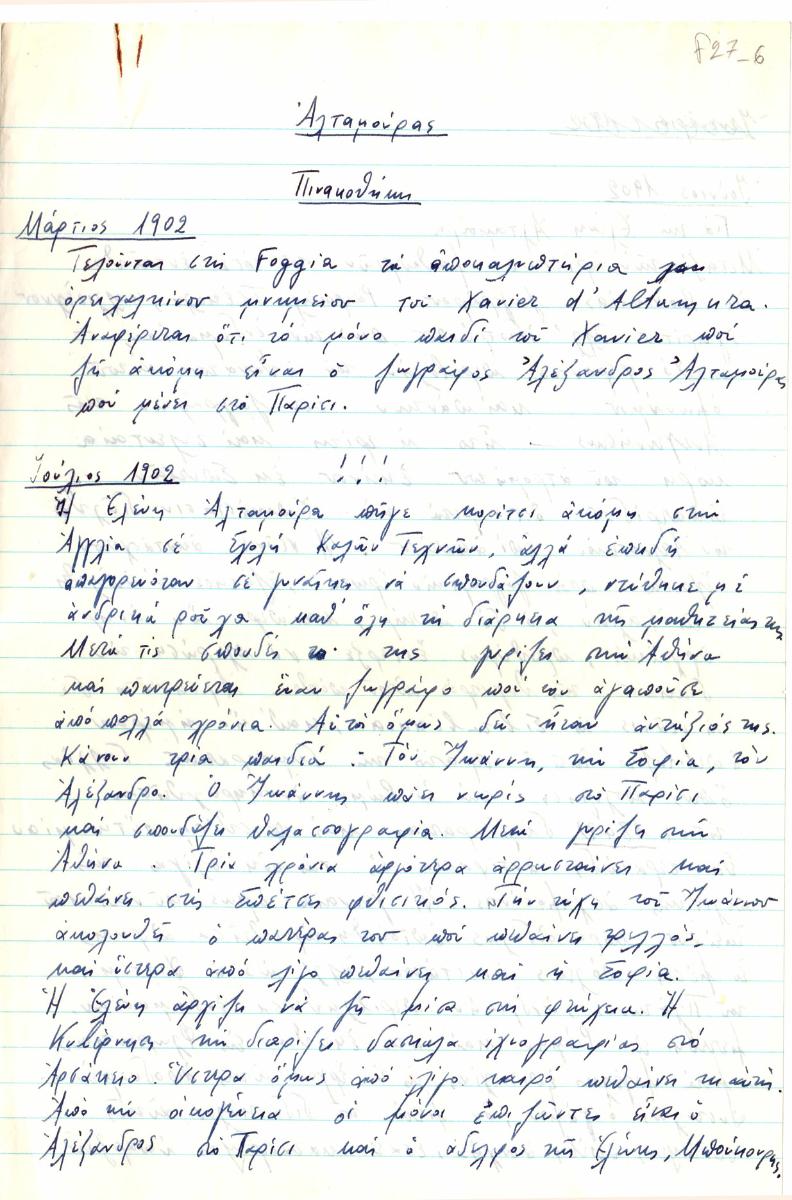 F27_6
Ἀλταμούρας
Πινακοθήκη
Μάρτιος 1902
Τελοῦνται στή Foggia τά ἀποκαλυπτήρια
ὀρειχαλκίνου μνημείου τοῦ Xavier d'Altamura.
Ἀναφέρεται ὅτι τό μόνο παιδί τοῦ Xavier πού
ζῆ ἀκόμη εἶναι ὁ ζωγράφος Ἀλέξανδρος Ἀλταμούρας
πού μένει στό Παρίσι.
Ἰούλιος 1902 !!!
Ἡ Ἑλένη Ἀλταμούρα πῆγε κορίτσι ἀκόμη στήν
Ἀγγλία σέ Σχολή Καλῶν Τεχνῶν, ἀλλά ἐπειδή
ἀπαγορευόταν σέ γυναῖκες νά σπουδάζουν, ντύθηκε μέ
ἀνδρικά ροῦχα καθ' ὅλη τή διάρκεια τῆς μαθητείας της.
Μετά τίς σπουδές της γυρίζει στήν Ἀθήνα
καί παντρεύεται ἕναν ζωγράφο πού τόν ἀγαποῦσε
ἀπό πολλά χρόνια. Αὐτός ὅμως δέ ἦταν ἀντάξιός της.
Κάνουν τρία παιδιά: Τόν Ἰωάννη, τήν Σοφία, τόν
Ἀλέξανδρο. Ὁ Ἰωάννης πάει νωρίς στό Παρίσι
καί σπουδάζει θαλασσογραφία. Μετά γυρίζει στήν
Ἀθήνα. Τρία χρόνια ἀργότερα ἀρρωσταίνει καί
πεθαίνει στίς Σπέτσες φθισικός. Τήν τύχη τοῦ Ἰωάννου
ἀκολουθεῖ ὁ πατέρας του πού πεθαίνει τρελλός,
καί ὕστερα ἀπό λίγο πεθαίνει καί ἡ Σοφία.
Ἡ Ἑλένη ἀρχίζει νά ζῆ μέσα στή φτώχεια. Ἡ
Κυβέρνηση τήν διορίζει δασκάλα ἰχνογραφίας στό
Ἀρσάκειο. Ὕστερα ὅμως ἀπό λίγο καιρό πεθαίνει κι αὐτή.
Ἀπό τήν οἰκογένεια οἱ μόνοι ἐπιζῶντες εἶναι ὁ
Ἀλέξανδρος στό Παρίσι καί ὁ ἀδελφός τῆς Ἑλένης, Μπούκουρης.